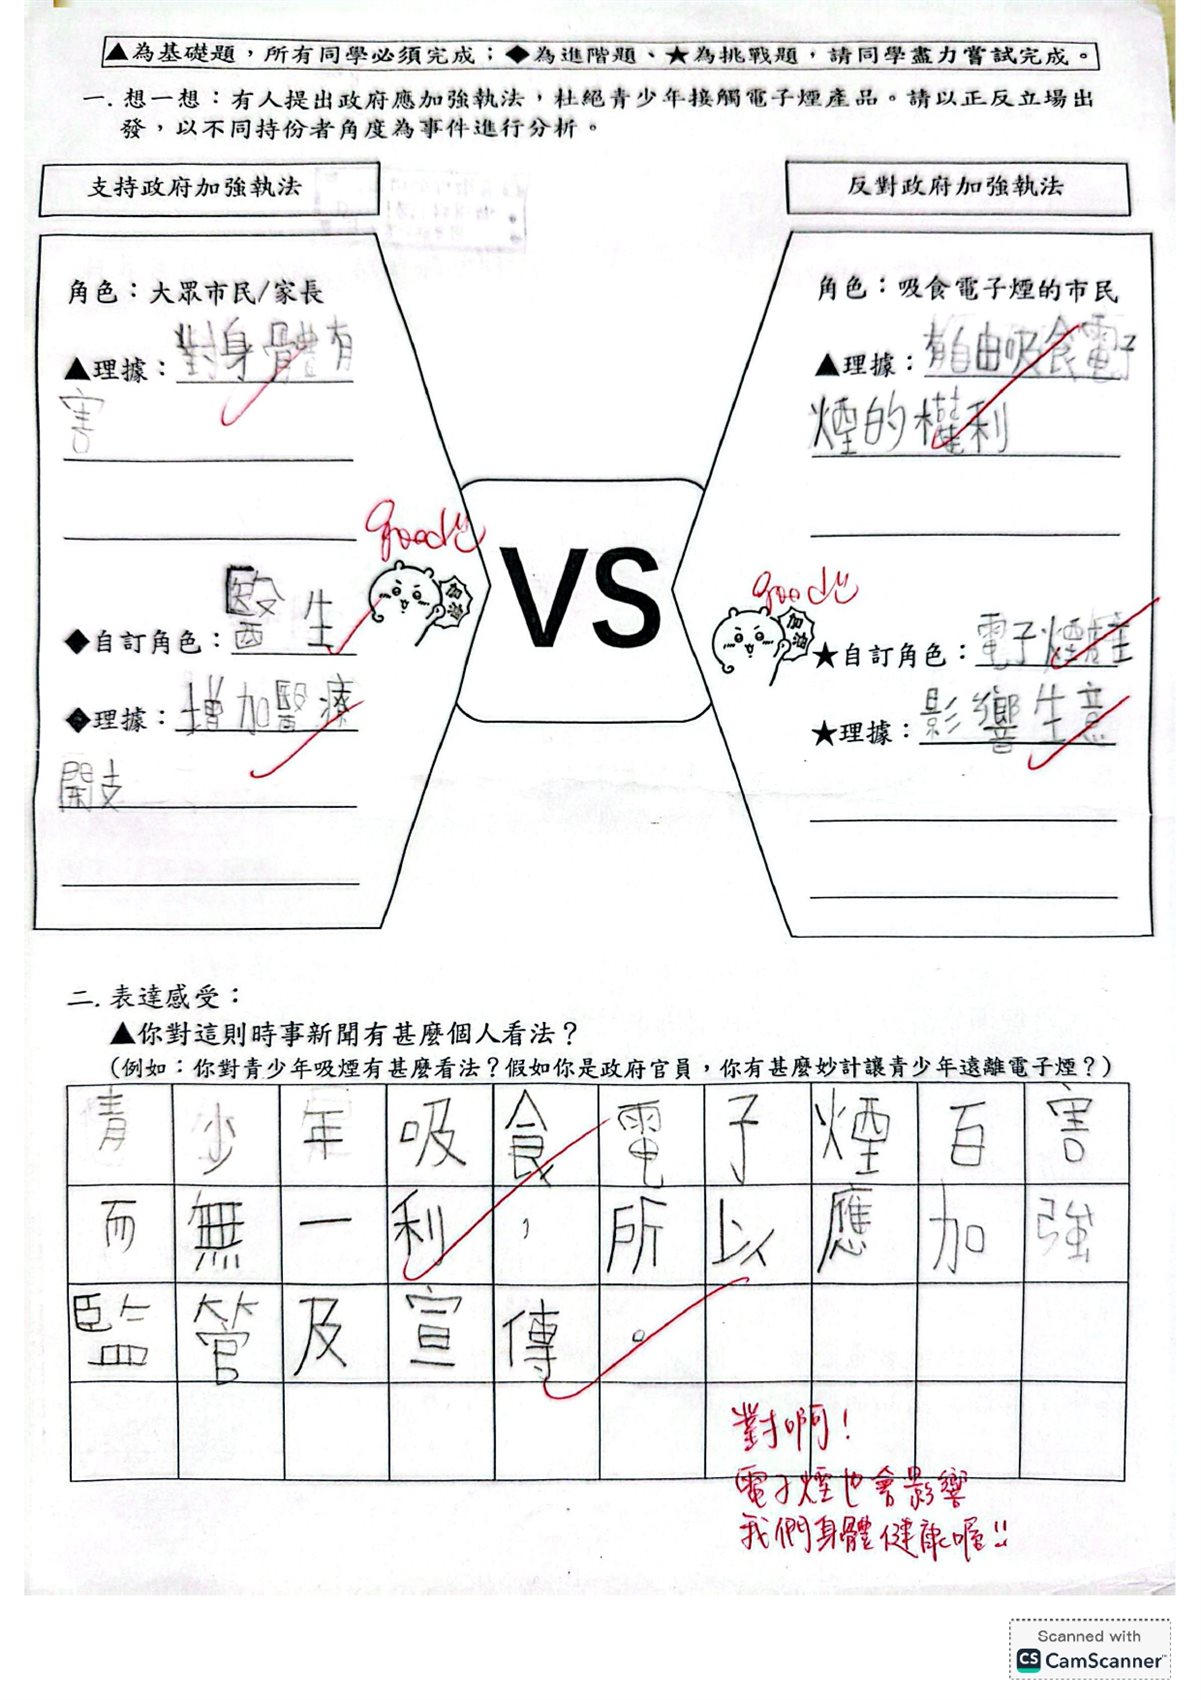 ▲為基礎題，所有同學必須完成；◆為進階題、★為挑戰題，請同學盡力嘗試完成。
一. 想一想：有人提出政府應加強執法，杜絕青少年接觸電子煙產品。請以正反立場出
發，以不同持份者角度為事件進行分析。
支持政府加強執法
角色：大眾市民/家長
▲理據：對身體有
害
good
加油
◆自訂角色：醫生
◆理據：增加醫療
開支
VS
反對政府加強執法
角色：吸食電子煙的市民
▲理據：有自由吸食電子
煙的權利
good
加油
★自訂角色：電子煙
★理據：影響生意
二. 表達感受：
▲你對這則時事新聞有甚麼個人看法？
(例如：你對青少年吸煙有甚麼看法？假如你是政府官員，你有甚麼妙計讓青少年遠離電子煙？)
青少年吸食電子煙百害
而無一利，所以應加強
監管及宣傳。
對啊！
電子煙也會影響
我們身體健康喔!!
Scanned with
CS CamScanner